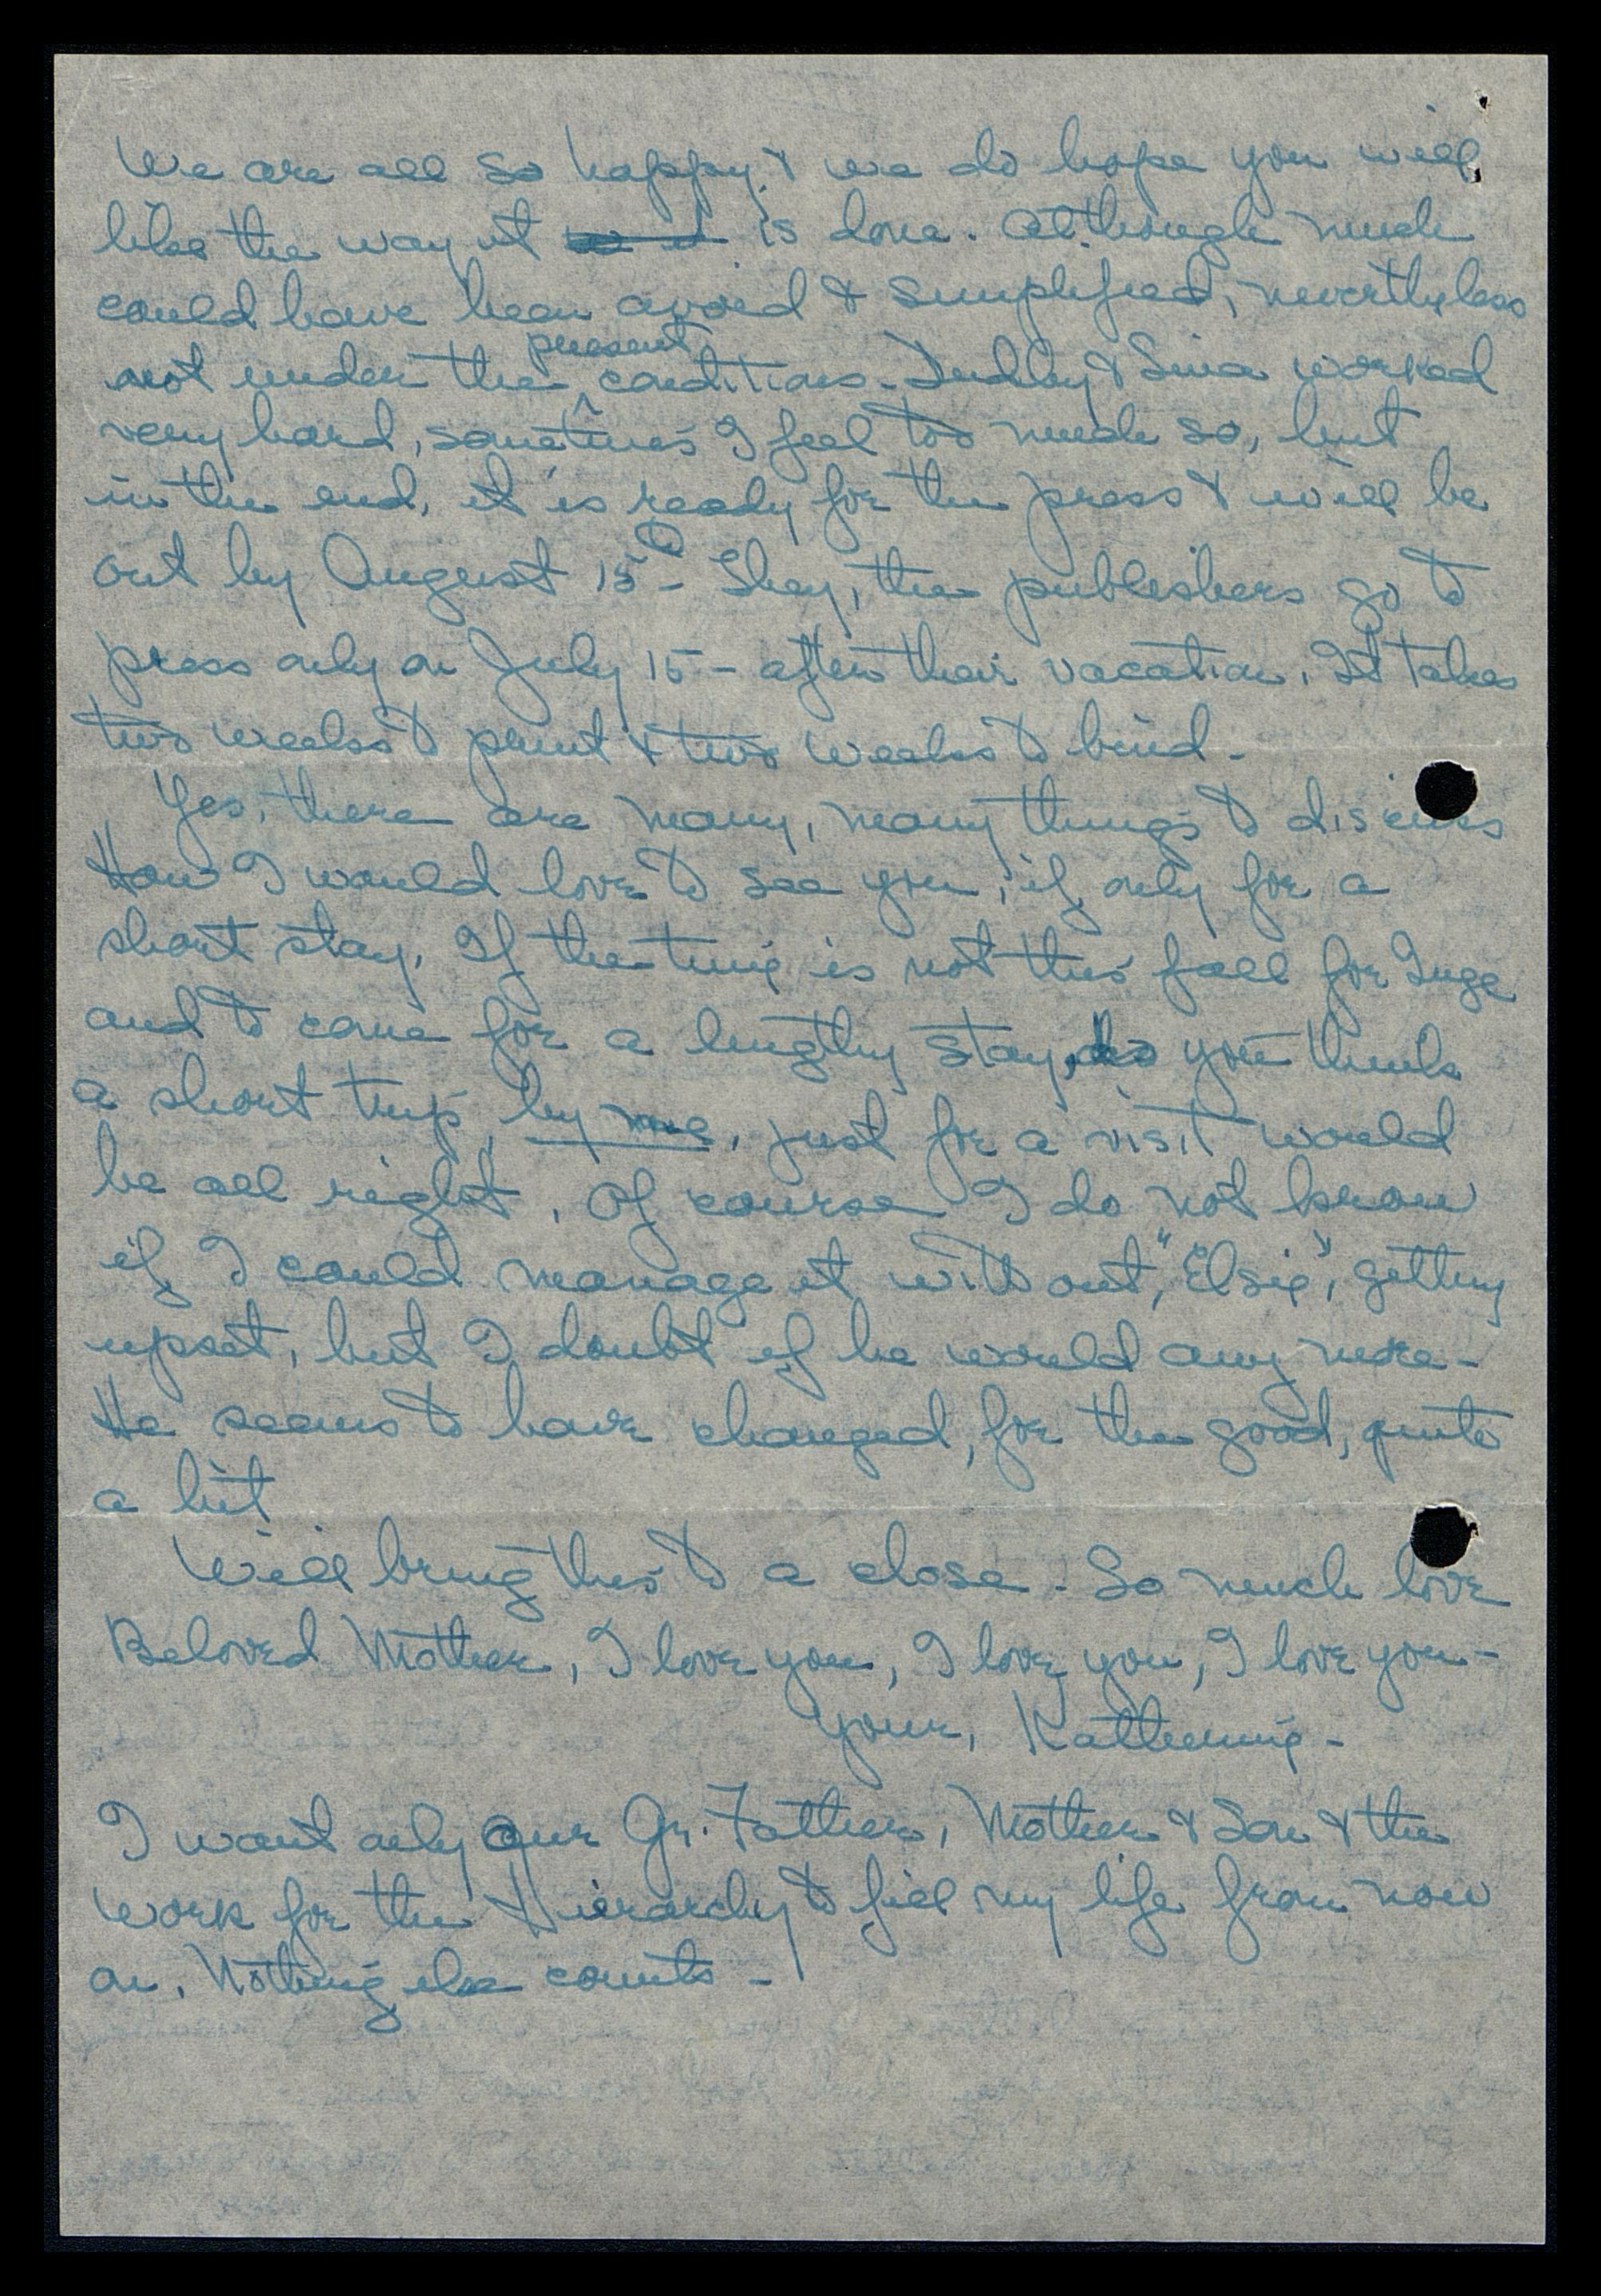 We are all so happy & we do hope you will
like the way it is done. Although much
could have been avoied & simplified, neverthyless
present
not under the conditions. Dudley & Sina worked
very hard, sometimes I feel too much so, but
in the end, it is ready for the press & will be
out by August 15th - They, the publishers go to
press only on July 15 - after their vacation. It takes
two weeks to print & two weeks to bind -
Yes, there are many, many things to discuss
How I would love to see you, if only for a
short stay. If the time is not this fall for Inge
and to come for a lengthy stay, do you think
a short trip, by me, just for a visit would
be all right. Of course I do not know
if I could manage it without, "Elsie", getting
upset, but I doubt if he would any more -
He seems to have changed, for the good, quite
a bit
Will bring this to a close - So much love
Beloved Mother, I love you, I love you, I love you -
Your, Katherine -
I want only our Gr. Father, Mother & Son & the
work for the Hierarchy to fill my life from now
on. Nothing else counts -